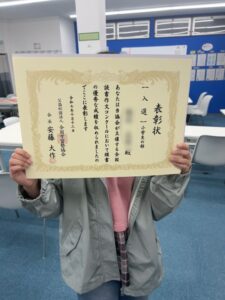 表彰状
一 入選 一
小学生の部
殿
あなたは当協会が主催する全国
読書作文コンクールにおいて頭書
の優秀な成績を収められましたの
でここに表彰します
公益社団法人 全国学習塾協会
会長 安藤 大作